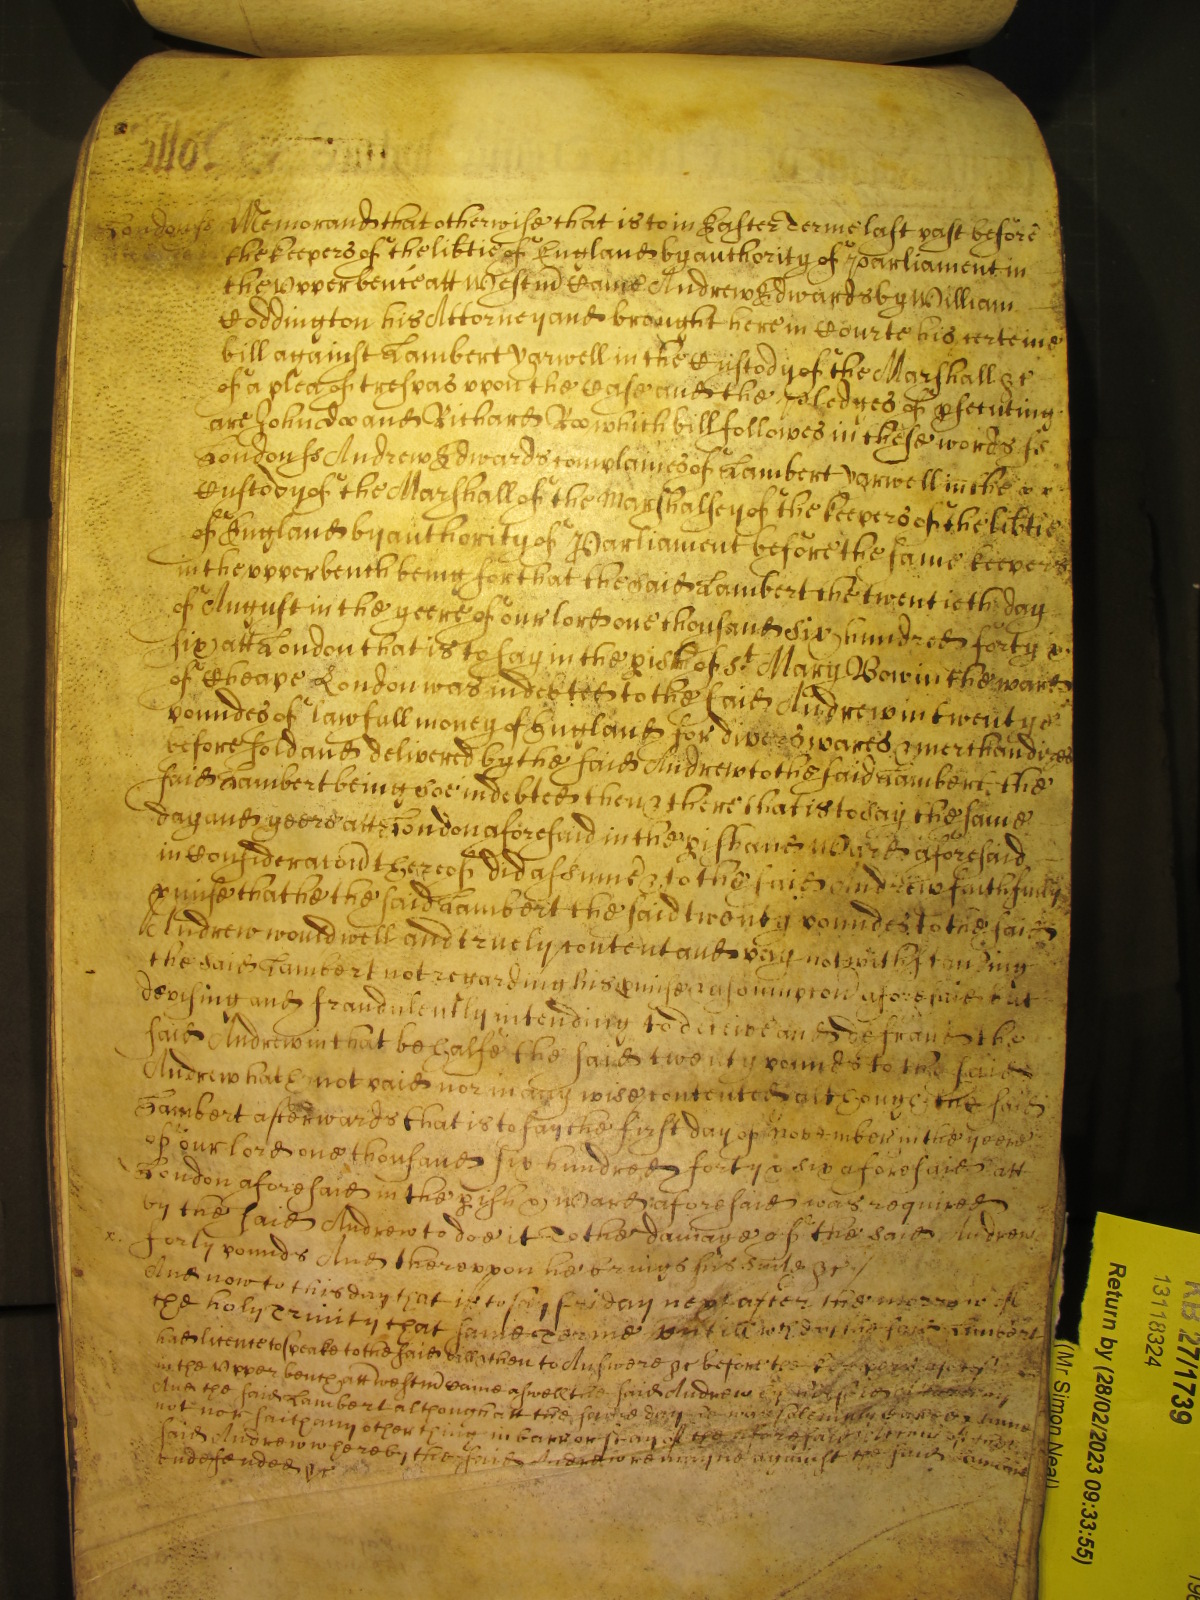 Londonss Memorand that otherwise that is to in Easter Terme last past before
the keepers of the lib̃tie of England by authority of Parliament in
the Upper bench att Westm̃ Came Andrew Edwards by William
Coddington his Attorney and brought here in Courte his certeine
bill against Lambert Varwell in the Custody of the Marshall &c
of a plea of trespas upon the Case and the Pledges of p̃secuting
are John doo and Richard Roo which bill followes in these words ss
London ss Andrew Edwards complaines of Lambert Varwell in the
Custody of the Marshall of the Marshalsey of the keepers of the lib̃tie
of England by authority of Parliament before the same keepers
in the upper bench being for that the said Lambert the twentieth day
of August in the yeere of our lord one thousand six hundred forty &
six att London that is to say in the p̃ish of St Mary Bow in the ward
of Cheape London was indebted to the said Andrew in twentye
poundes of lawfull money of England for divers wares & merchandizes
before sold and delivered by the said Andrew to the said Lambert the
said Lambert being soe indebted then & there that is to say the same
day and yeere att London aforesaid in the p̃ish and Ward aforesaid
in Consideracõn thereof did assume & to the said Andrew faithfully
p̃mise that he the said Lambert the said twenty poundes to the said
Andrew would well and truely content and pay notwithstanding
the said Lambert not regarding his p̃mise & assumpcõn aforesaid but
devising and fraudulently intending to deceive and defraud the
said Andrew in that behalfe the said twenty pounds to the said
Andrew hath not paid nor in any wise contented although the said
Lambert afterwards that is to say the first day of November in the yeere
of our lord one thousand six hundred forty & six aforesaid att
London aforesaid in the p̃ish & Ward aforesaid was required
by the said Andrew to doe it To the damage of the said Andrew
forty pounds And thereupon he brings his suite &c
And now to this day that is to say friday next after the morrow of
the holy Trinity that same Terme untill wch day the said Lambert
had licence to speake to the said bill & then to Answere &c before the keepers
in the Upper bench att Westm̃ came aswell the said Andrew by his said Attorney
And the said Lambert although att the same day he was solemnly called came
not nor saith any other thing in barr or stay of the aforesaid Accon of the
said Andrew whereby the said Andrew remayne against the said Lambert
undefended &c
KB 27/1739
13118324
Return by (28/02/2023 09:33:55)
(Mr Simon Neal)